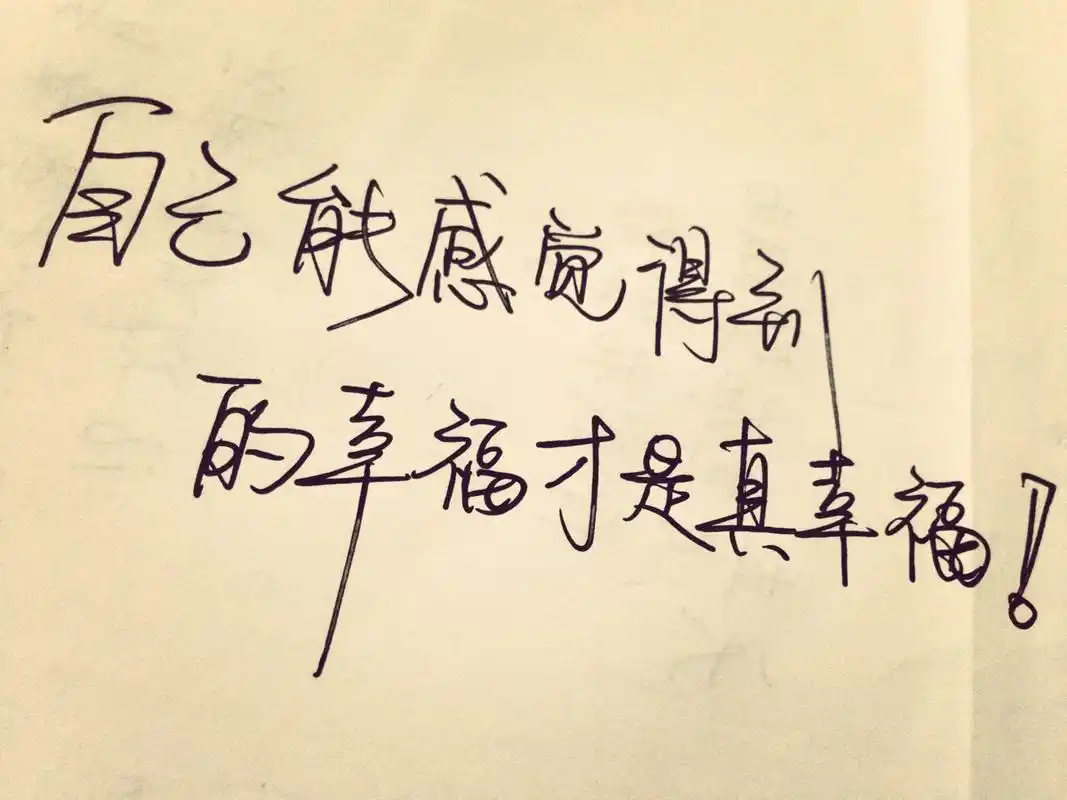 自己能感觉得到
的幸福才是真幸福！